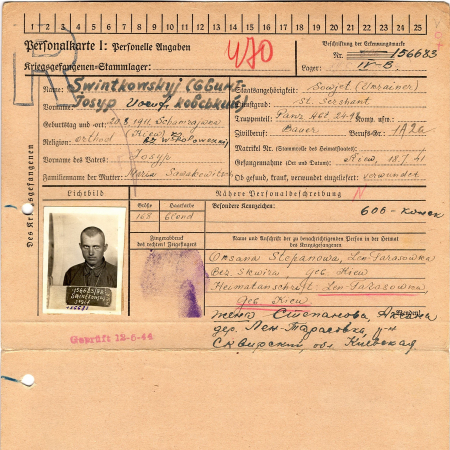 1 2 3 4 5 6 7 8 9 10 11 12 13 14 15 16 17 18 19 20 21 22 23 24 25
Personalkarte I: Personelle Angaben
470
Beschriftung der Erkennungsmarke
Nr. 156683
Kriegsgefangenen-Stammlager:
Lager: IV-B.
Des Kriegsgefangenen
Name: Swintkowskyj
Staatsangehörigkeit: Sowjet (Ukrainer)
Vorname: Josyp
Dienstgrad: st. Sershant
Truppenteil: Panz
Geburtstag und -ort: 20.3.1911
Zivilberuf: Bauer Berufs-Gr.: 1A2a
Religion: orthod.
(Kiew)
Matrikel Nr. (Stammrolle des Heimatstaates):
Vorname des Vaters: Josyp
Gefangennahme (Ort und Datum): Kiew, 18.7.41
Familienname der Mutter: Maria
Ob gesund, krank, verwundet eingeliefert: verwundet
Lichtbild
Nähere Personalbeschreibung
Größe Haarfarbe
168 blond
Besondere Kennzeichen:
Fingerabdruck
des rechten! Zeigefingers
Name und Anschrift der zu benachrichtigenden Person in der Heimat
des Kriegsgefangenen
Oksana Stepanowa, Len-Tarasowka
Bez. Skwira, geb. Kiew
Heimatanschrift: Len-Tarasowka
Geb. Kiew
жена Степанова, Аксана
дер. Лен-Тарасовка, р-н
Сквирский, обл. Киевская
156683
Geprüft 12-6-44